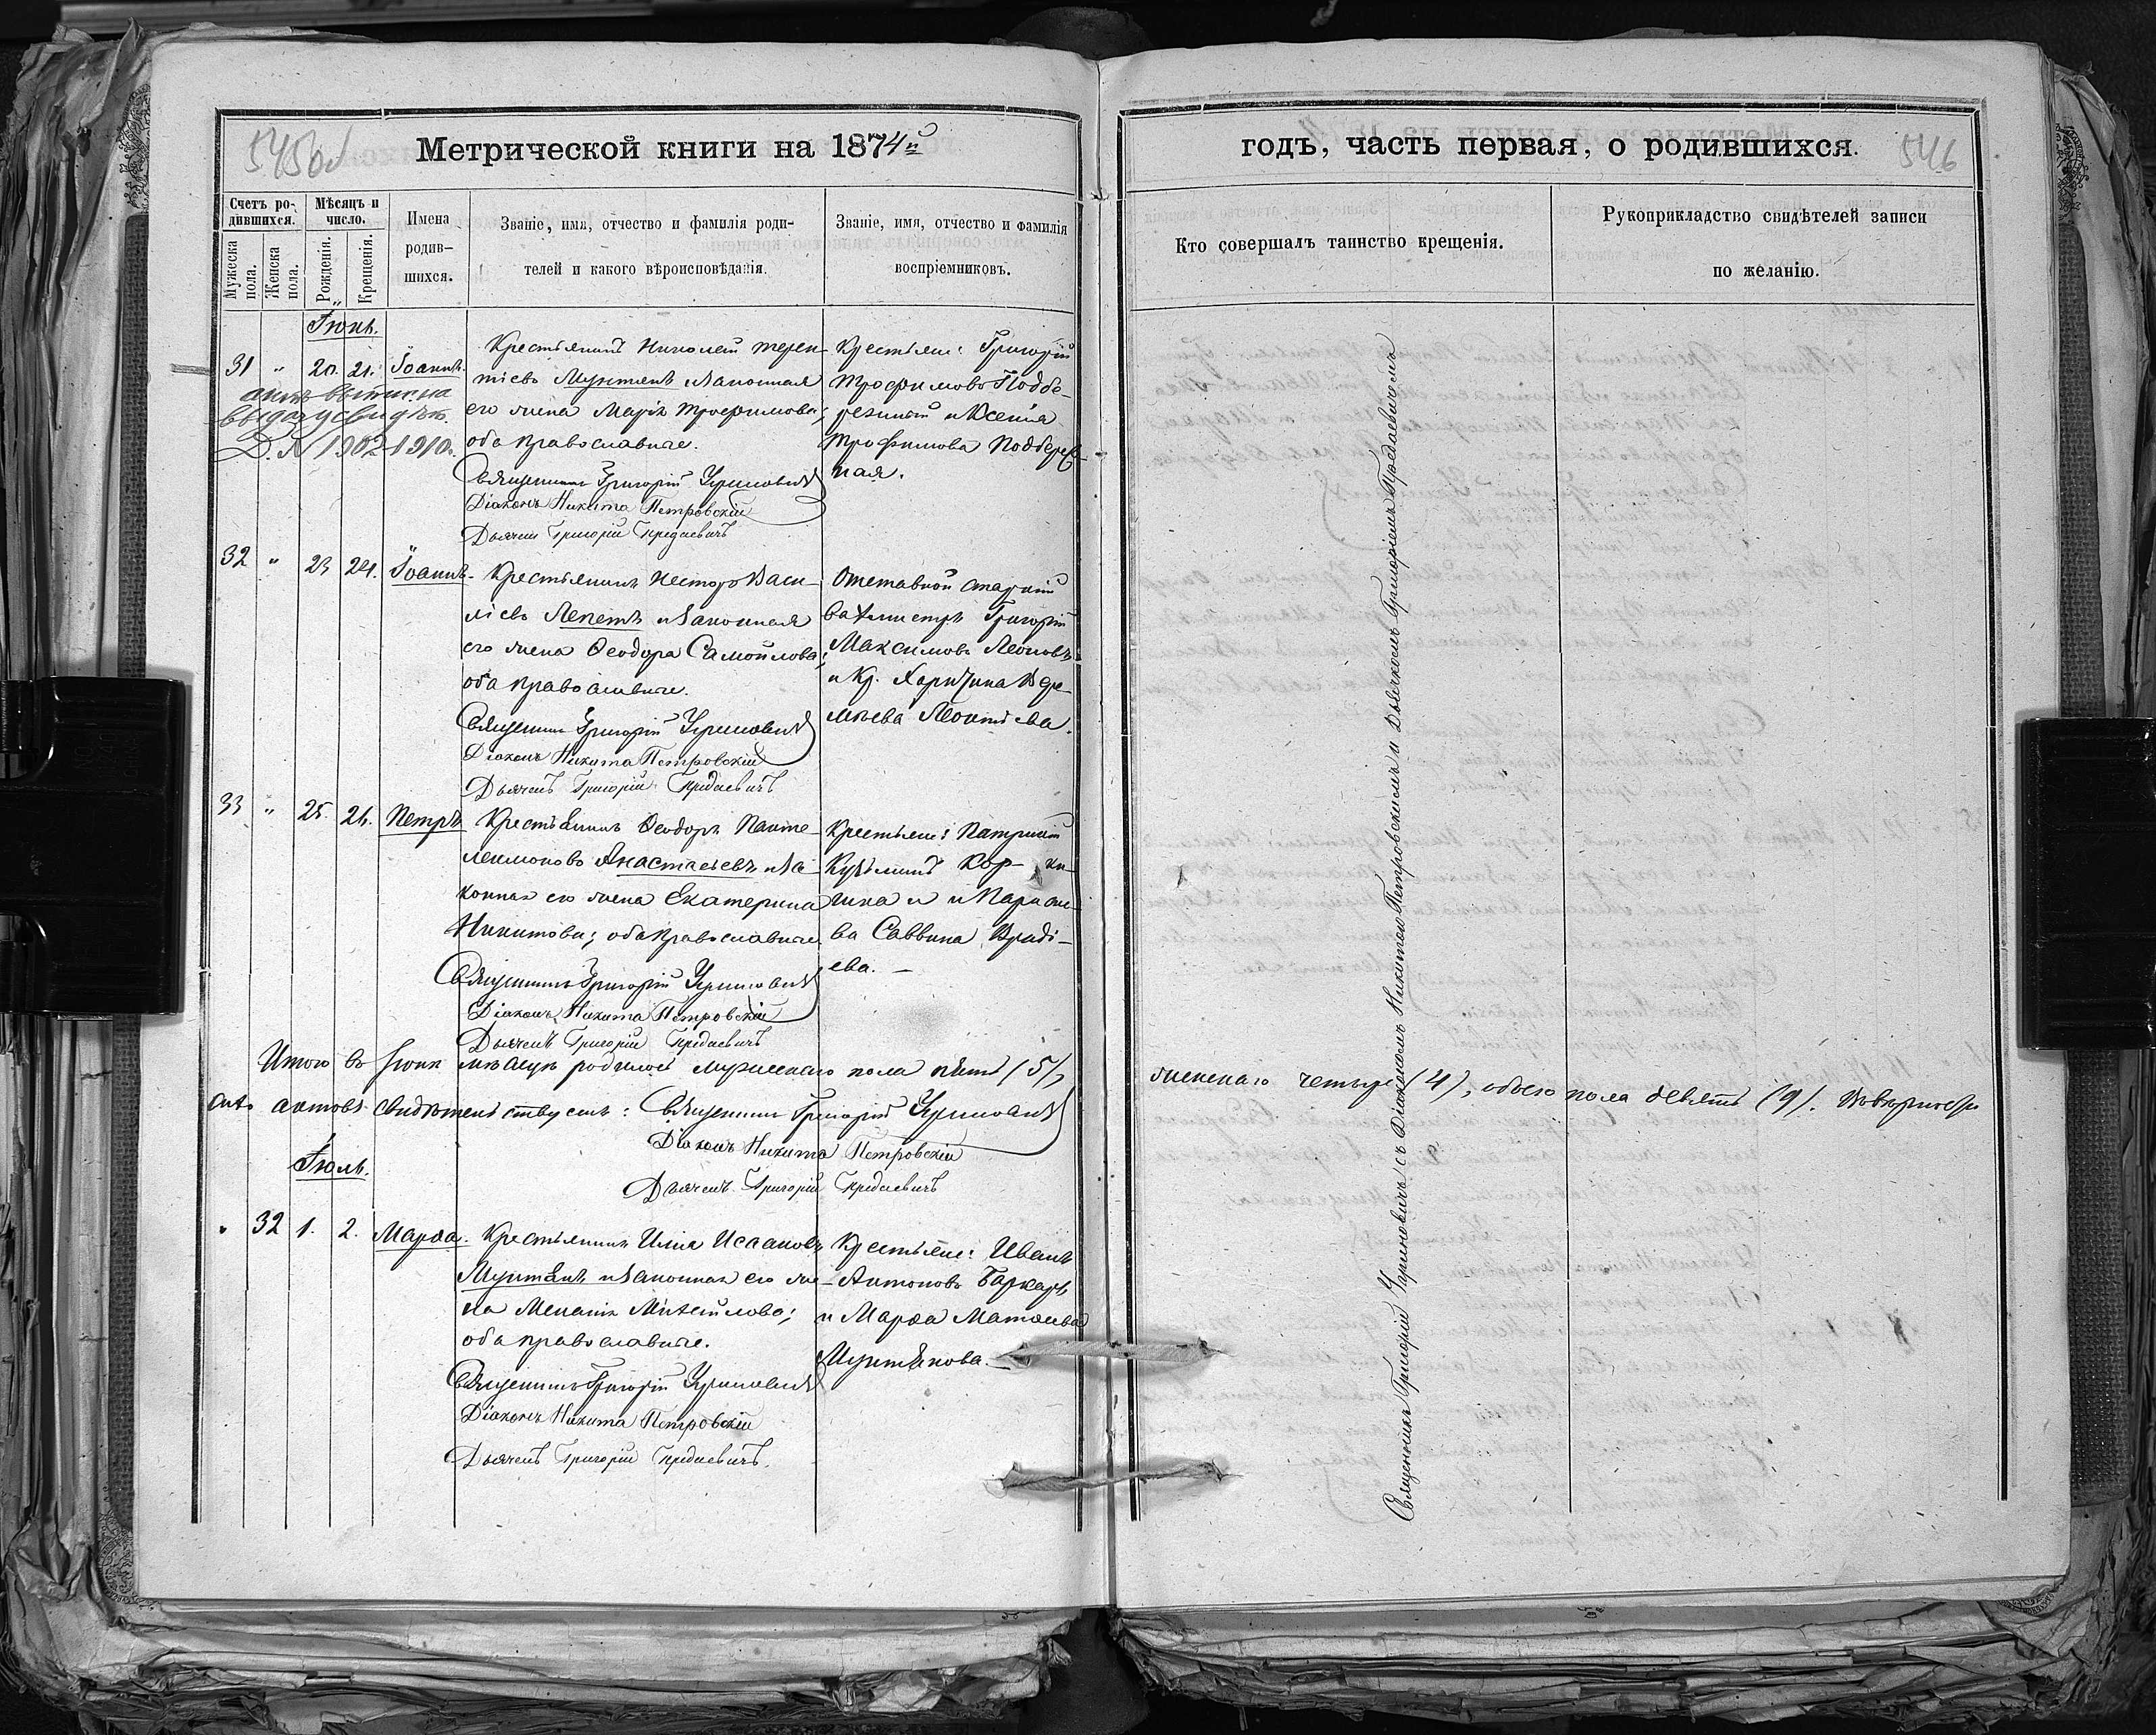 545об
Метрической книги на 1874й
Счетъ родившихся.
Мѣсяцъ и число.
Имена родившихся.
Званіе, имя, отчество и фамилія роди-
телей и какого вѣроисповѣданія.
Званіе, имя, отчество и фамилія
воспріемниковъ.
Мужеска пола.
Женска пола.
Рожденія.
Крещенія.
Іюнь.
31 " 20. 21. Іоаннъ.
Крестьянинъ Николай Терен-
тіевъ Мунтянъ и законная
его жена Марія Трофимова;
оба православные.
Священникъ Григорій
Діаконъ Никита Петровскій
Дьячекъ Григорій
Крестьяне: Григорій
Трофимовъ Подбе-
резный и Ксенія
Трофимова Подберез-
ная.
выдачу свидѣт.
32 " 23 24. Іоаннъ.
Крестьянинъ Несторъ Васи-
ліевъ Лепетъ и законная
его жена Ѳеодора Самойлова;
оба православные.
Священникъ Григорій
Діаконъ Никита Петровскій
Дьячекъ Григорій
Отставной старшій
вахмистръ Григорій
Максимовъ Леоновъ
и Кр. Харитина
Леонтіева.
33 " 25. 26. Петръ
Крестьянинъ Ѳеодоръ Панте-
леимоновъ Анастасьевъ и за-
конная его жена Екатерина
Никитова; оба православные
Священникъ Григорій
Діаконъ Никита Петровскій
Дьячекъ Григорій
Крестьяне: Патрикій
Кузьминъ
и Параске-
ва Саввина Вради-
ева. —
Итого въ Іюнѣ мѣсяцѣ родилось мужескаго пола пять (5),
актовъ свидѣтельствуемъ: Священникъ Григорій
Діаконъ Никита Петровскій
Дьячекъ Григорій
Іюль.
" 32 1. 2. Марѳа.
Крестьянинъ Илія Исааковъ
Мунтянъ и законная его же-
на Меланія Михайлова;
оба православные.
Священникъ Григорій
Діаконъ Никита Петровскій
Дьячекъ Григорій
Крестьяне: Иванъ
Антоновъ Баркарь
и Марѳа Матѳеева
Мунтянова. —
годъ, часть первая, о родившихся.
546
Кто совершалъ таинство крещенія.
Рукоприкладство свидѣтелей записи
по желанію.
женскаго четыре (4), обоего пола девять (9).
Священникъ Григорій съ Діакономъ Никитою Петровскимъ и Дьячкомъ Григоріемъ